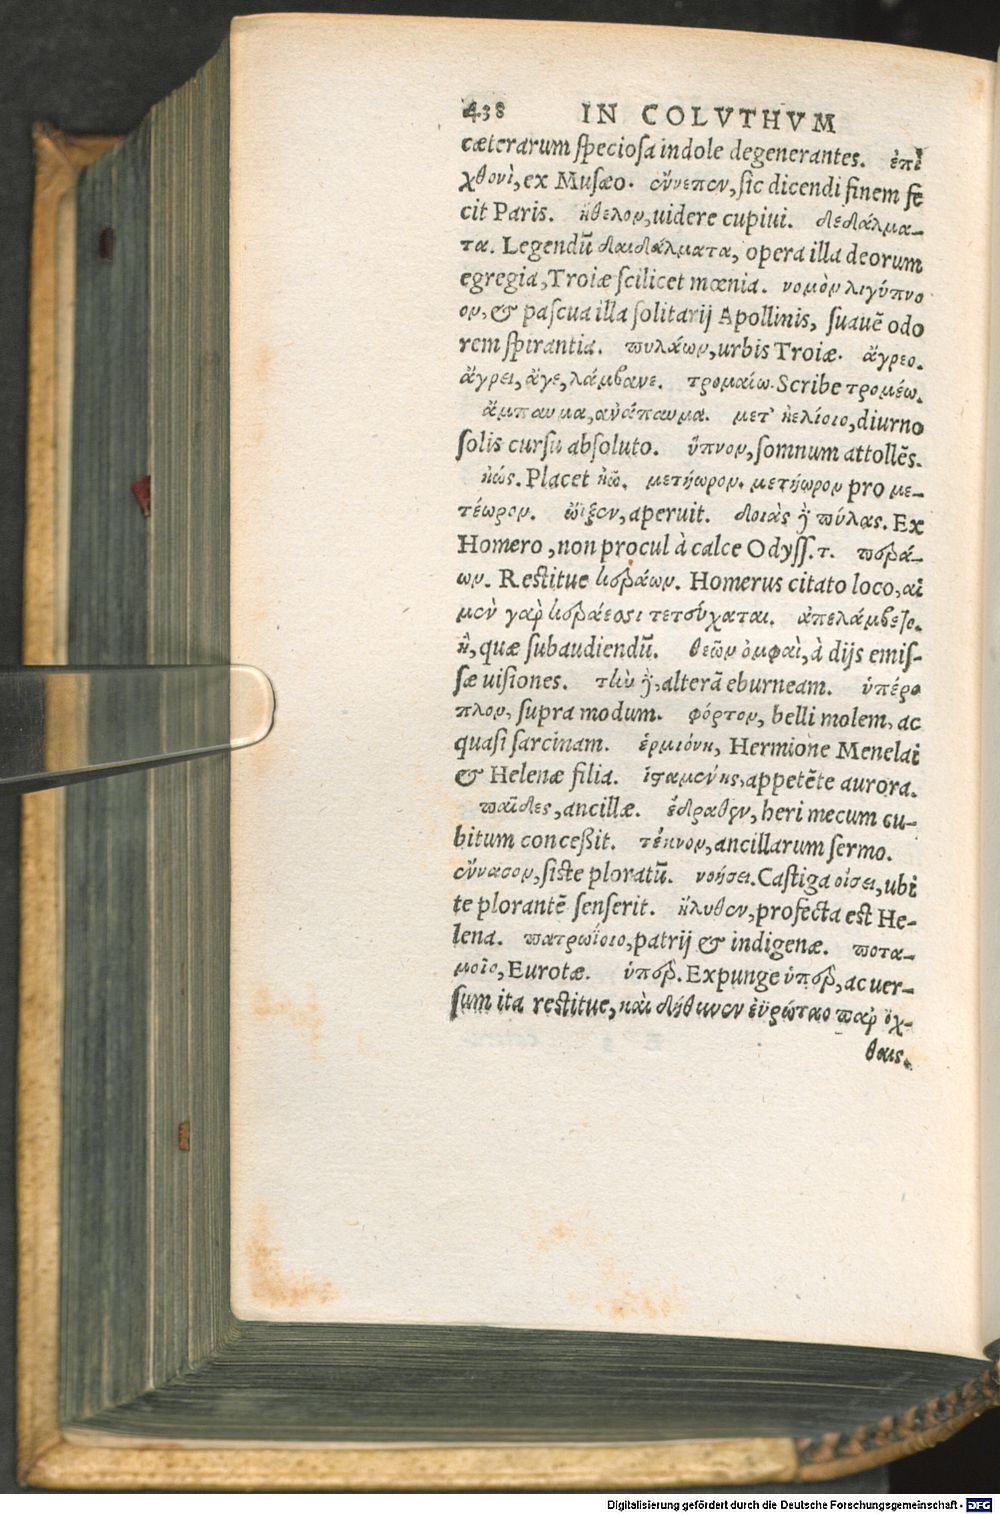 438 IN COLVTHVM
cæterarum speciosa indole degenerantes. ἐπὶ
χθονὶ, ex Musæo. οὔνεπεν, sic dicendi finem fe
cit Paris. ἤθελον, uidere cupiui. δεδάλμα-
τα. Legendū δαιδάλματα, opera illa deorum
egregia, Troiæ scilicet mœnia. νομὸν λιγύπνο
ον, & pascua illa solitarij Apollinis, suauē odo
rem spirantia. πυλάων, urbis Troiæ. ἄγρεο.
ἄγρει, ἄγε, λάμβανε. τρομαίω. Scribe τρομέω.
ἄμπαυμα, ἀνάπαυμα. μετ' ἠελίοιο, diurno
solis cursu absoluto. ὕπνον, somnum attollēs.
ἠώς. Placet ἠῶ. μετήωρον. μετήωρον pro με-
τέωρον. ὤϊξεν, aperuit. δοιὰς ἢ πύλας. Ex
Homero, non procul à calce Odyss. τ. κερά-
ων. Restitue κεράων. Homerus citato loco, αἱ
μὲν γὰρ κεράεσσι τετεύχαται. ἀπελάμβετο.
ἣ, quæ subaudiendū. θεῶν ὀμφαὶ, à dijs emis-
sæ uisiones. τὴν ἢ, alterā eburneam. ὑπέρο
πλον, supra modum. φόρτον, belli molem, ac
quasi sarcinam. ἑρμιόνη, Hermione Menelai
& Helenæ filia. ἱσαμένης, appetēte aurora.
παῖδες, ancillæ. ἔδραθεν, heri mecum cu-
bitum concessit. τέκνον, ancillarum sermo.
εὔνασον, siste ploratū. νοήσει. Castiga οἴσει, ubi
te plorantē senserit. ἤλυθεν, profecta est He-
lena. πατρωΐοιο, patrij & indigenæ. ποτα-
μοῖο, Eurotæ. ὑπὲρ. Expunge ὑπὲρ, ac uer-
sum ita restitue, καὶ δήθυνεν ἐϋρώταο παρ' ὄχ-
θαις.
Digitalisierung gefördert durch die Deutsche Forschungsgemeinschaft - DFG